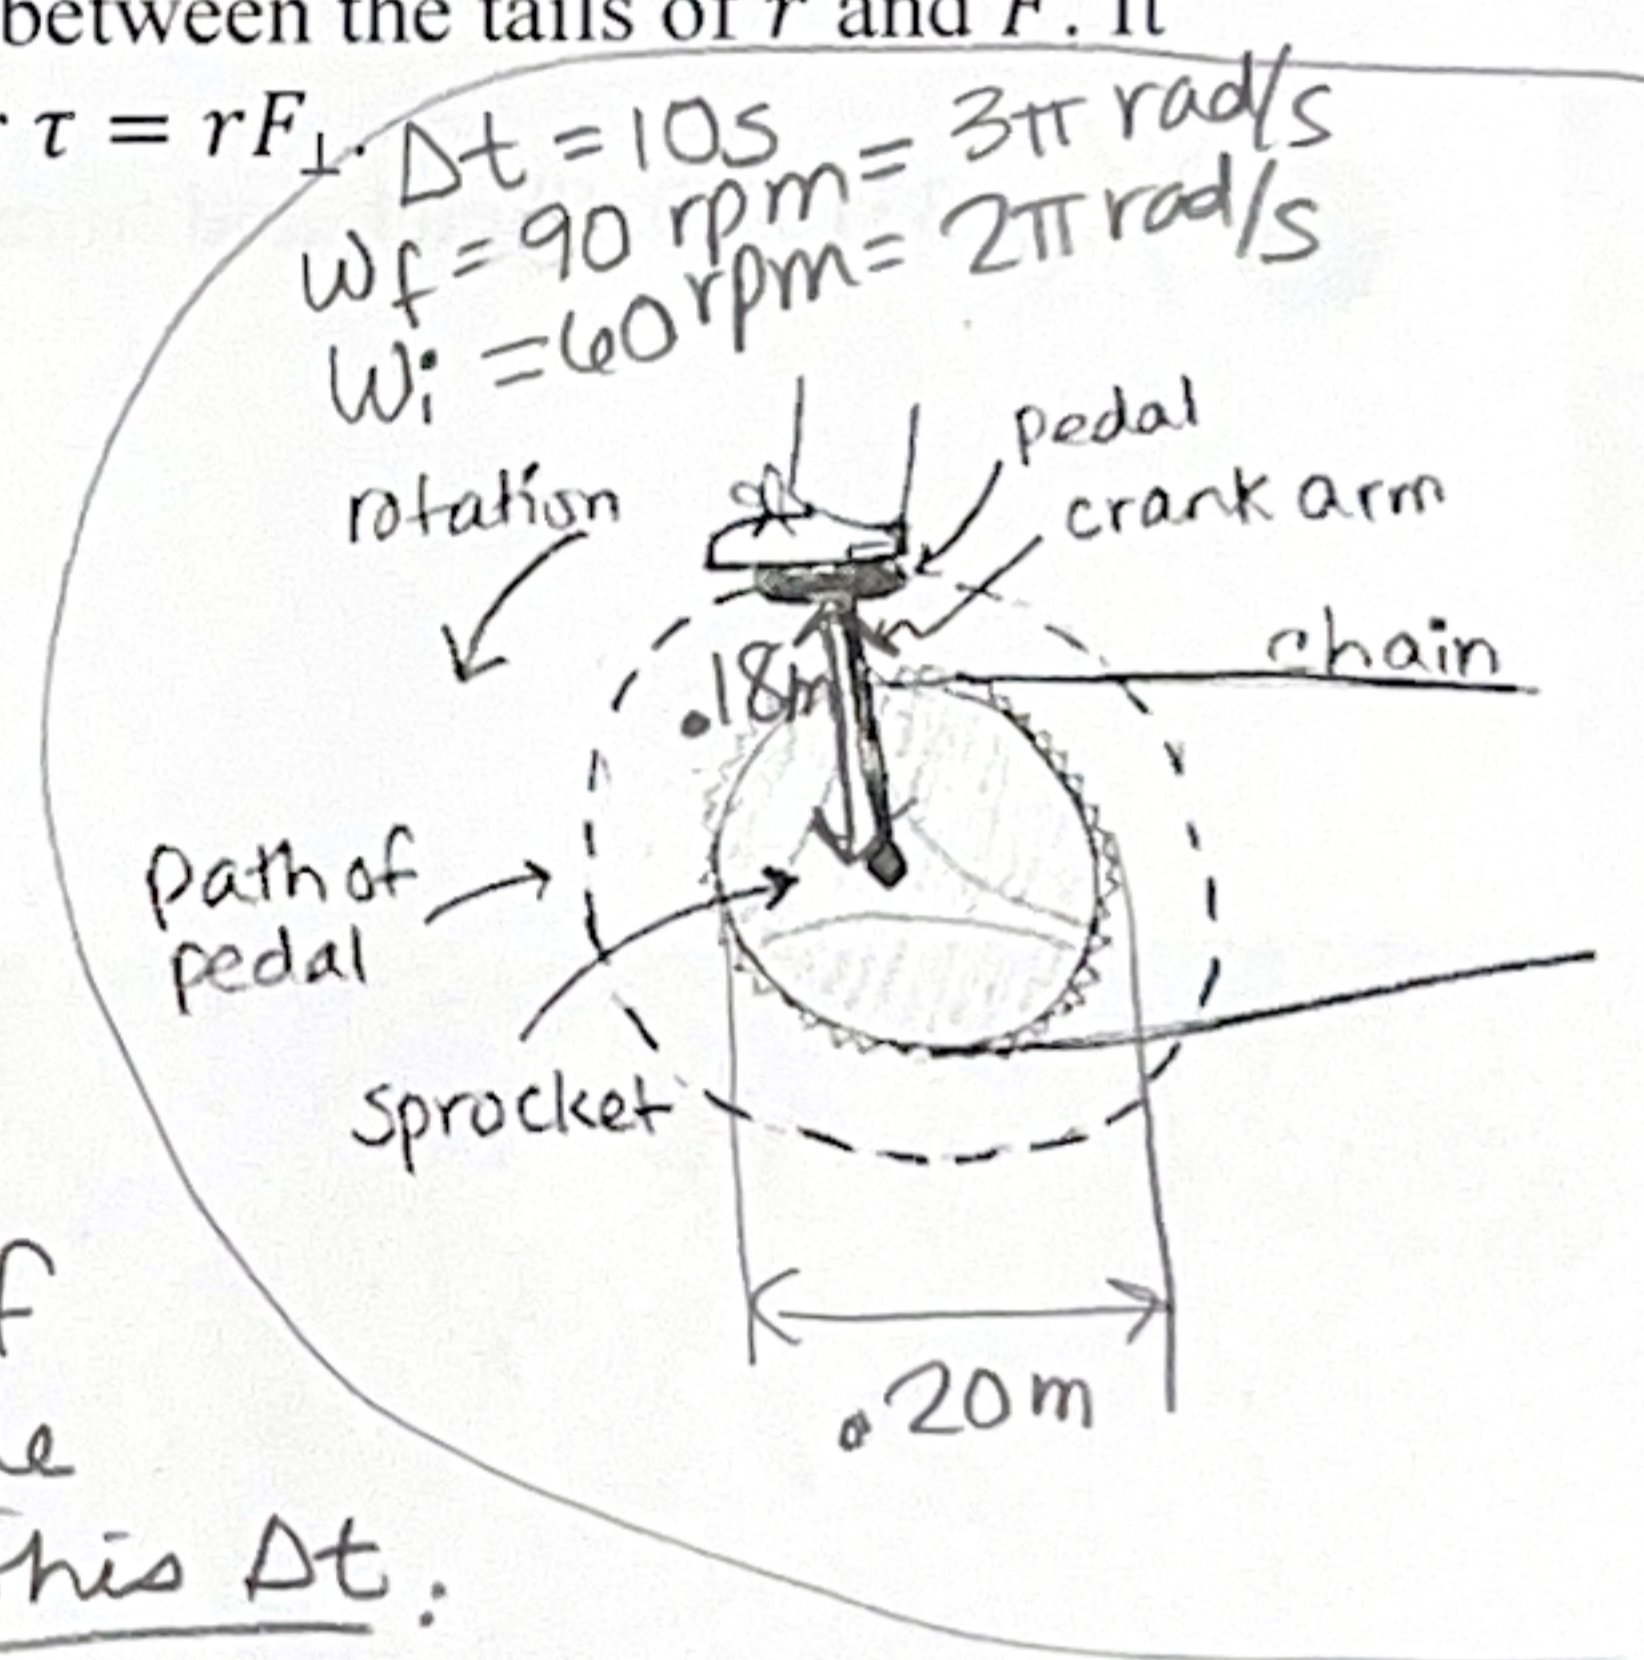 between the tails of r and F. It
τ = rF⊥.
Δt = 10s
ωf = 90 rpm = 3π rad/s
ωi = 60 rpm = 2π rad/s
pedal
crank arm
rotation
chain
.18m
path of
pedal
sprocket
.20m
f
e
this Δt.